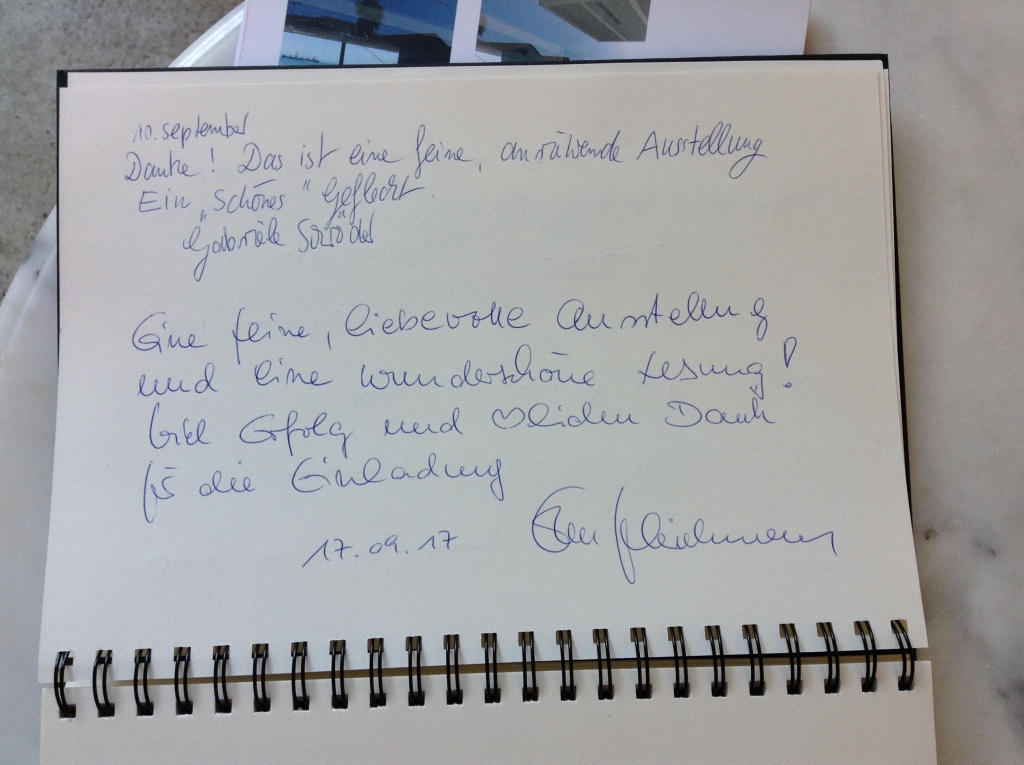 10. september
Danke! Das ist eine feine, anrührende Ausstellung
Ein "schönes" Geflecht.
Gabriele
Eine feine, liebevolle Ausstellung
und eine wunderschöne Lesung!
Viel Erfolg und ♡lichen Dank
für die Einladung
17.09.17